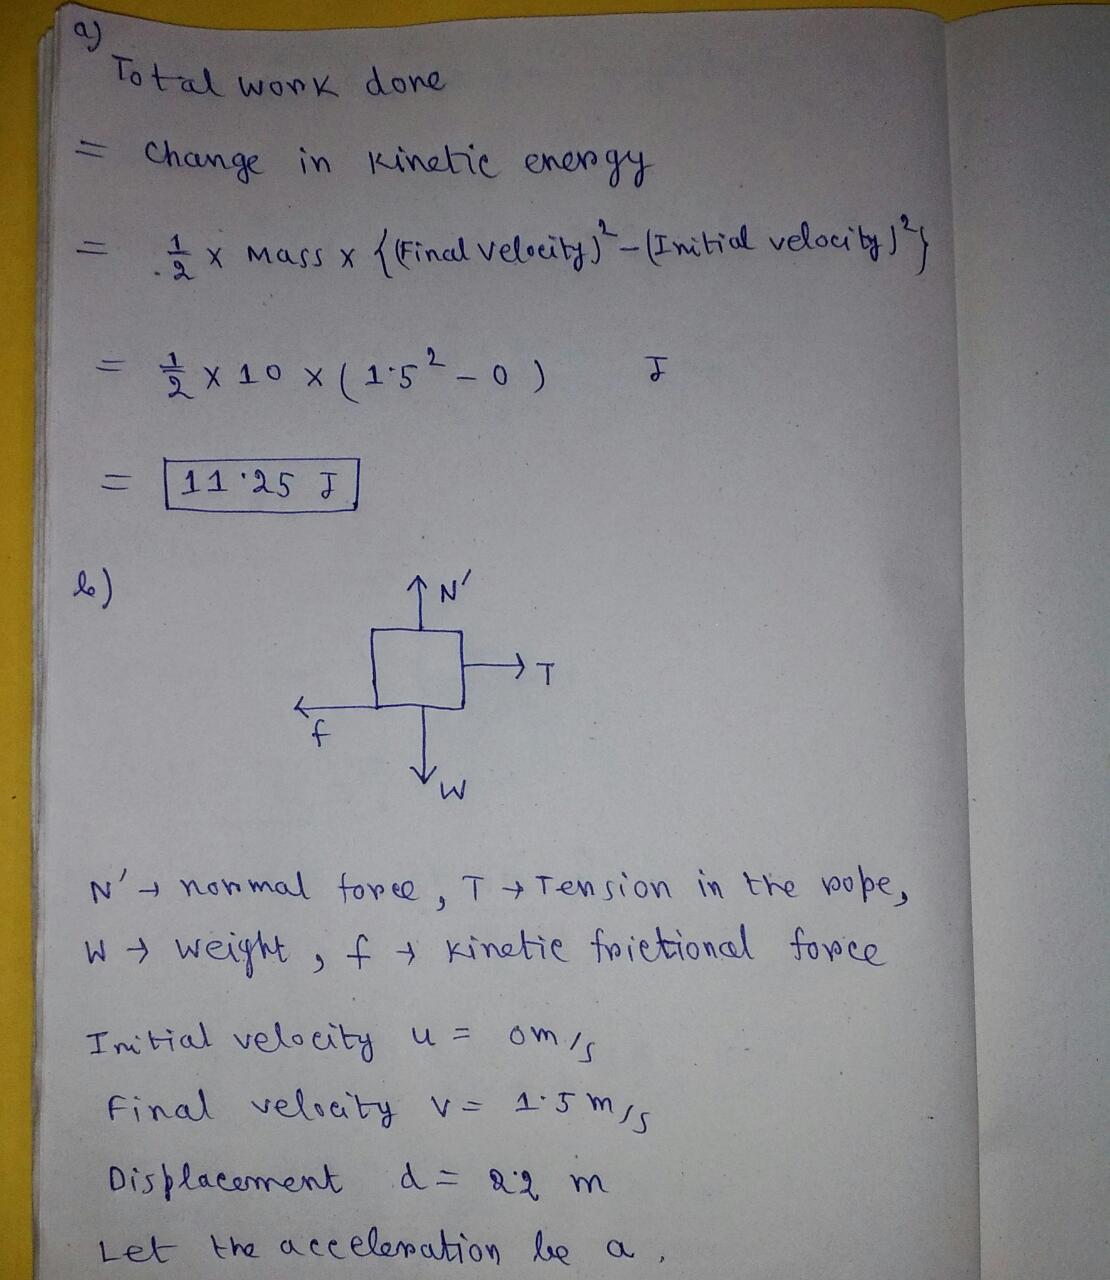 a)
Total work done
= Change in kinetic energy
= 1/2 × Mass × {(Final velocity)² - (Initial velocity)²}
= 1/2 × 10 × (1.5² - 0) J
= 11.25 J
b)
N'
T
f
W
N' → normal force, T → Tension in the rope,
W → weight, f → kinetic frictional force
Initial velocity u = 0 m/s
Final velocity v = 1.5 m/s
Displacement d = 2.2 m
Let the acceleration be a.